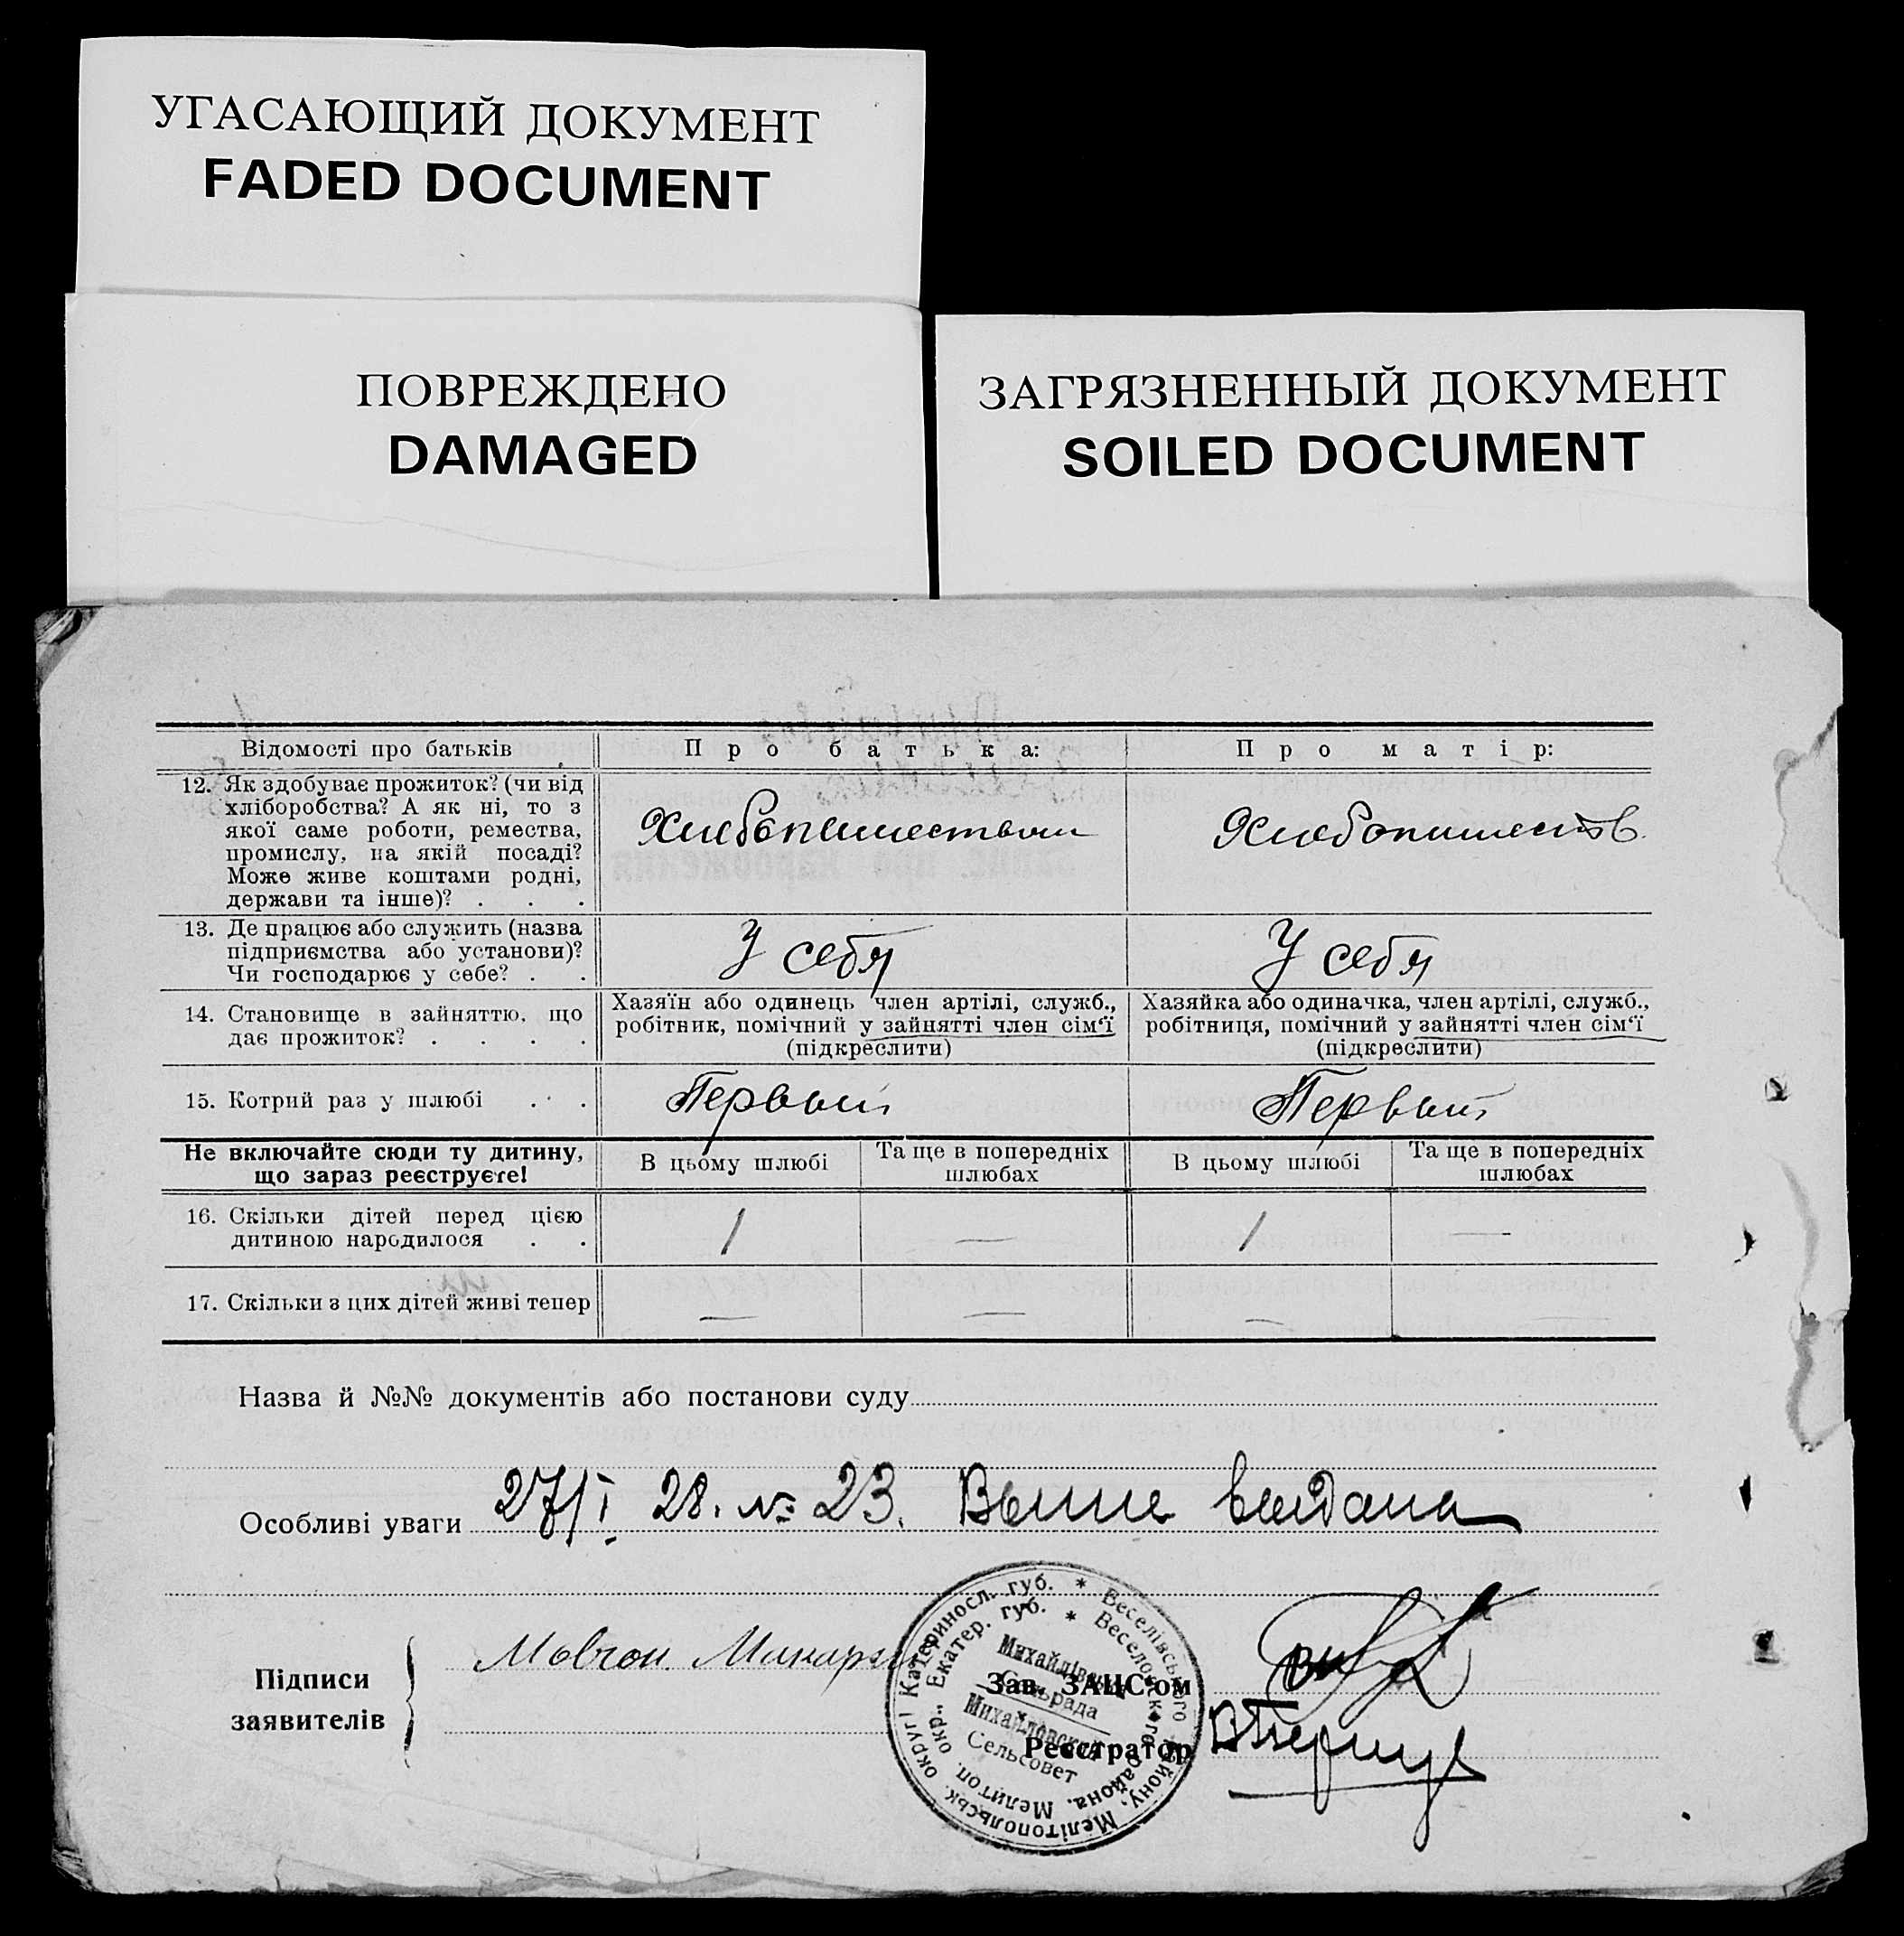 УГАСАЮЩИЙ ДОКУМЕНТ
FADED DOCUMENT
ПОВРЕЖДЕНО
DAMAGED
ЗАГРЯЗНЕННЫЙ ДОКУМЕНТ
SOILED DOCUMENT
Відомості про батьків Про батька: Про матір:
12. Як здобуває прожиток? (чи від
хліборобства? А як ні, то з
якої саме роботи, ремества,
промислу, на якій посаді?
Може живе коштами родні,
держави та інше)? . . .
Хлебопашеством
Хлебопашеств.
13. Де працює або служить (назва
підприємства або установи)?
Чи господарює у себе? . .
У себя
У себя
14. Становище в зайняттю, що
дає прожиток? . . . .
Хазяїн або одинець член артілі, служб.,
робітник, помічний у зайнятті член сім‘ї
(підкреслити)
Хазяйка або одиначка, член артілі, служб.,
робітниця, помічний у зайнятті член сім‘ї
(підкреслити)
15. Котрий раз у шлюбі . . .
Первый
Первый
Не включайте сюди ту дитину,
що зараз реєструєте!
В цьому шлюбі
Та ще в попередніх
шлюбах
В цьому шлюбі
Та ще в попередніх
шлюбах
16. Скільки дітей перед цією
дитиною народилося . .
1 — 1 —
17. Скільки з цих дітей живі тепер
— — —
Назва й №№ документів або постанови суду
Особливі уваги 27/I 28. № 23. Выпис выдана
Підписи
заявителів
Мовчан
Зав. ЗАЦС‘ом
Реєстратор
Мелітопольськ. округі Катериносл. губ. * Веселівського району,
Мелитоп. окр., Екатер. губ. * Веселовского района.
Михайлівська
Сельрада
Михайловский
Сельсовет